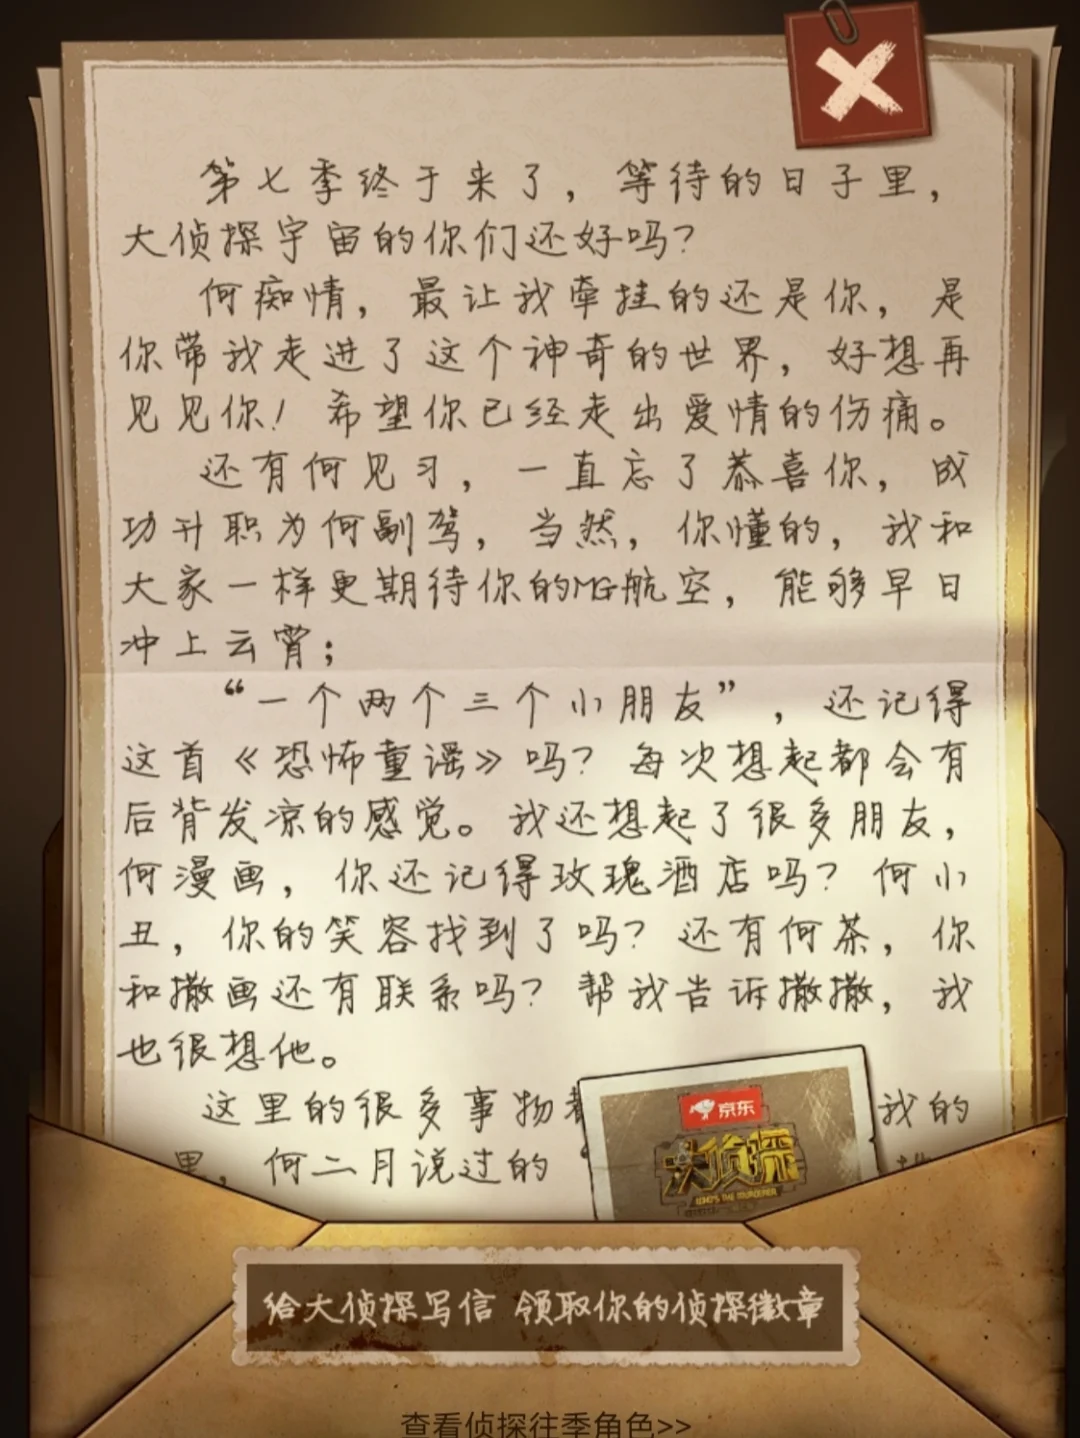 第七季终于来了，等待的日子里，
大侦探宇宙的你们还好吗？
何痴情，最让我牵挂的还是你，是
你带我走进了这个神奇的世界，好想再
见见你！希望你已经走出爱情的伤痛。
还有何见习，一直忘了恭喜你，成
功升职为何副驾，当然，你懂的，我和
大家一样更期待你的MG航空，能够早日
冲上云霄；
“一个两个三个小朋友”，还记得
这首《恐怖童谣》吗？每次想起都会有
后背发凉的感觉。我还想起了很多朋友，
何漫画，你还记得玫瑰酒店吗？何小
丑，你的笑容找到了吗？还有何茶，你
和撒画还有联系吗？帮我告诉撒撒，我
也很想他。
这里的很多事物 我的
里，何二月说过的“
京东
大侦探
WHO'S THE MURDERER
给大侦探写信 领取你的侦探徽章
查看侦探往季角色>>